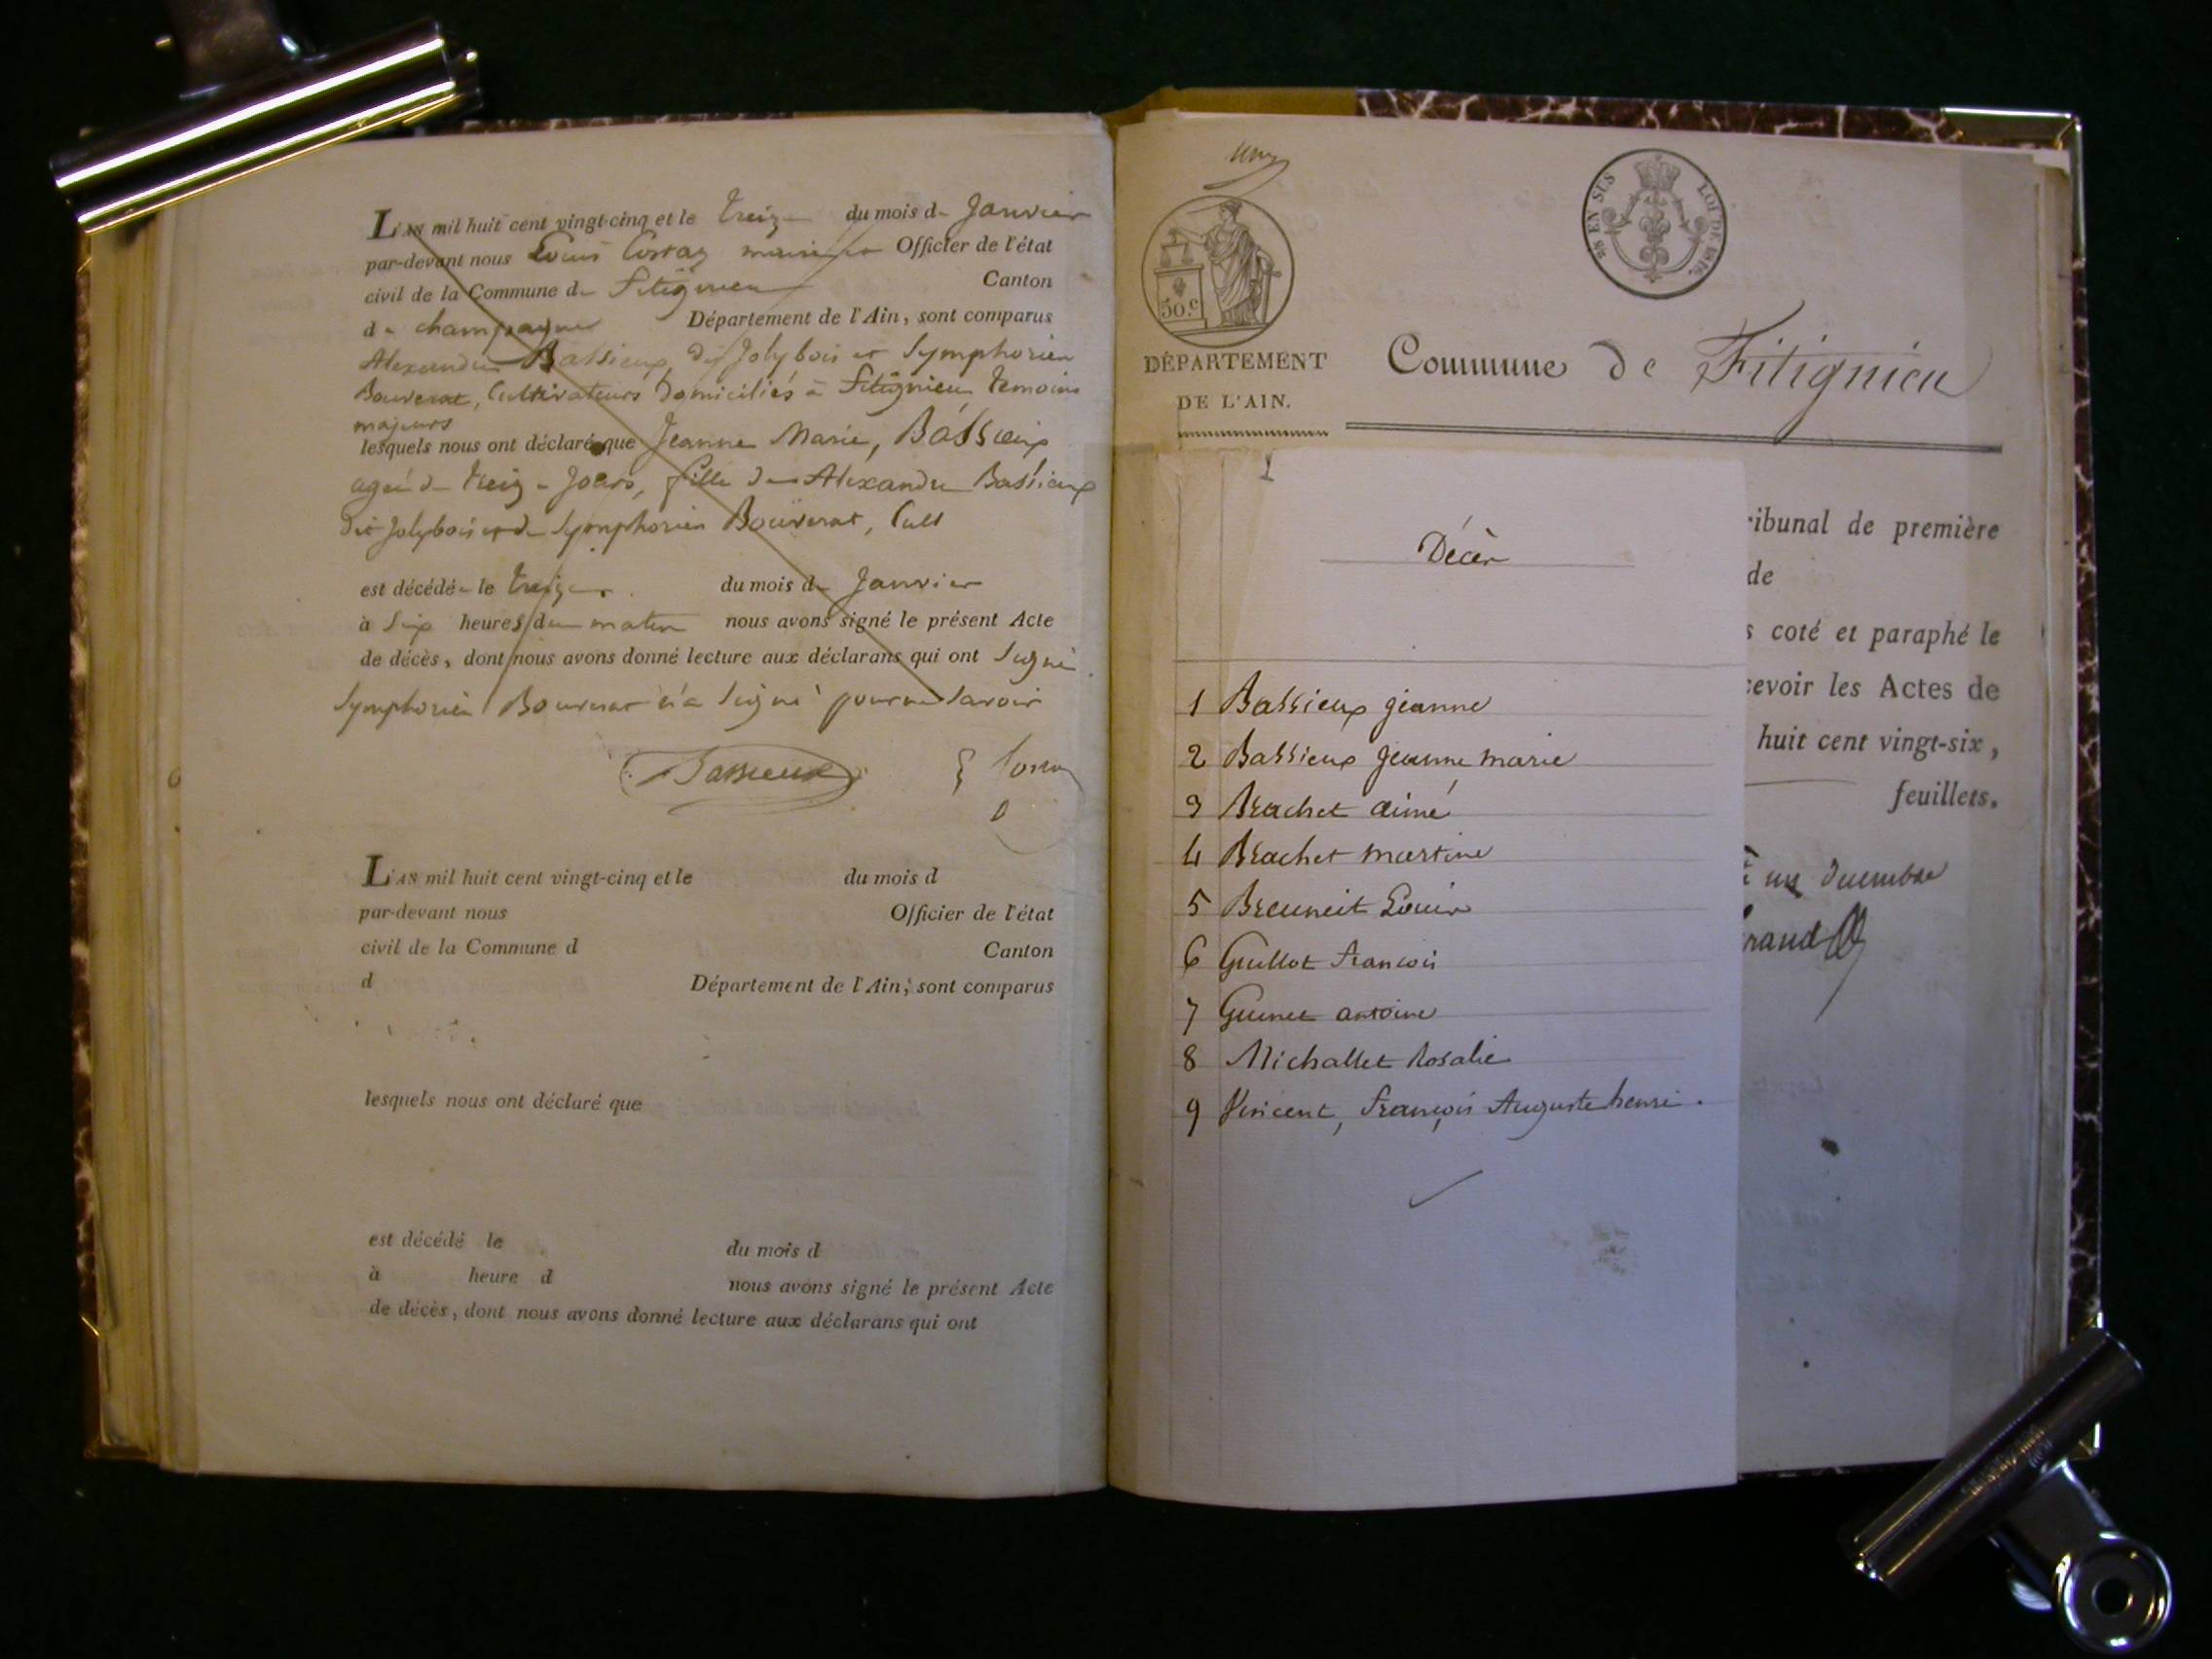 L'AN mil huit cent vingt-cinq et le treize du mois de Janvier
par-devant nous Louis Corraz maire et Officier de l'état
civil de la Commune de Fitignieu Canton
de champagne Département de l'Ain, sont comparus
Alexandre Bassieux dit Jolybois et Symphorien
Bouverat, Cultivateurs domiciliés à Fitignieu temoins
majeurs
lesquels nous ont déclaré que Jeanne Marie, Bassieux
ageé de treize Jours, fille de Alexandre Bassieux
dit Jolybois et de Symphorien Bouverat, Cult
est décédée le treize du mois de Janvier
à Six heures du matin nous avons signé le présent Acte
de décès, dont nous avons donné lecture aux déclarans qui ont Signé
Symphorien Bouverat n'a Signé pour ne Savoir
Bassieux
L'AN mil huit cent vingt-cinq et le du mois d
par-devant nous Officier de l'état
civil de la Commune d Canton
d Département de l'Ain, sont comparus
lesquels nous ont déclaré que
est décédé le du mois d
à heure d nous avons signé le présent Acte
de décès, dont nous avons donné lecture aux déclarans qui ont
EN SUS LOI DE 1816.
50.c
DÉPARTEMENT
DE L'AIN.
Commune de Fitignieu
1
Décès
1 Bassieux jeanne
2 Bassieux jeanne marie
3 Brachet aimé
4 Brachet martine
5 Breuneit Louis
6 Guillot francois
7 Guinet antoine
8 Michallet Rosalie
9 Vincent, françois Auguste henri.
ribunal de première
de
s coté et paraphé le
cevoir les Actes de
huit cent vingt-six,
feuillets.
un decembre